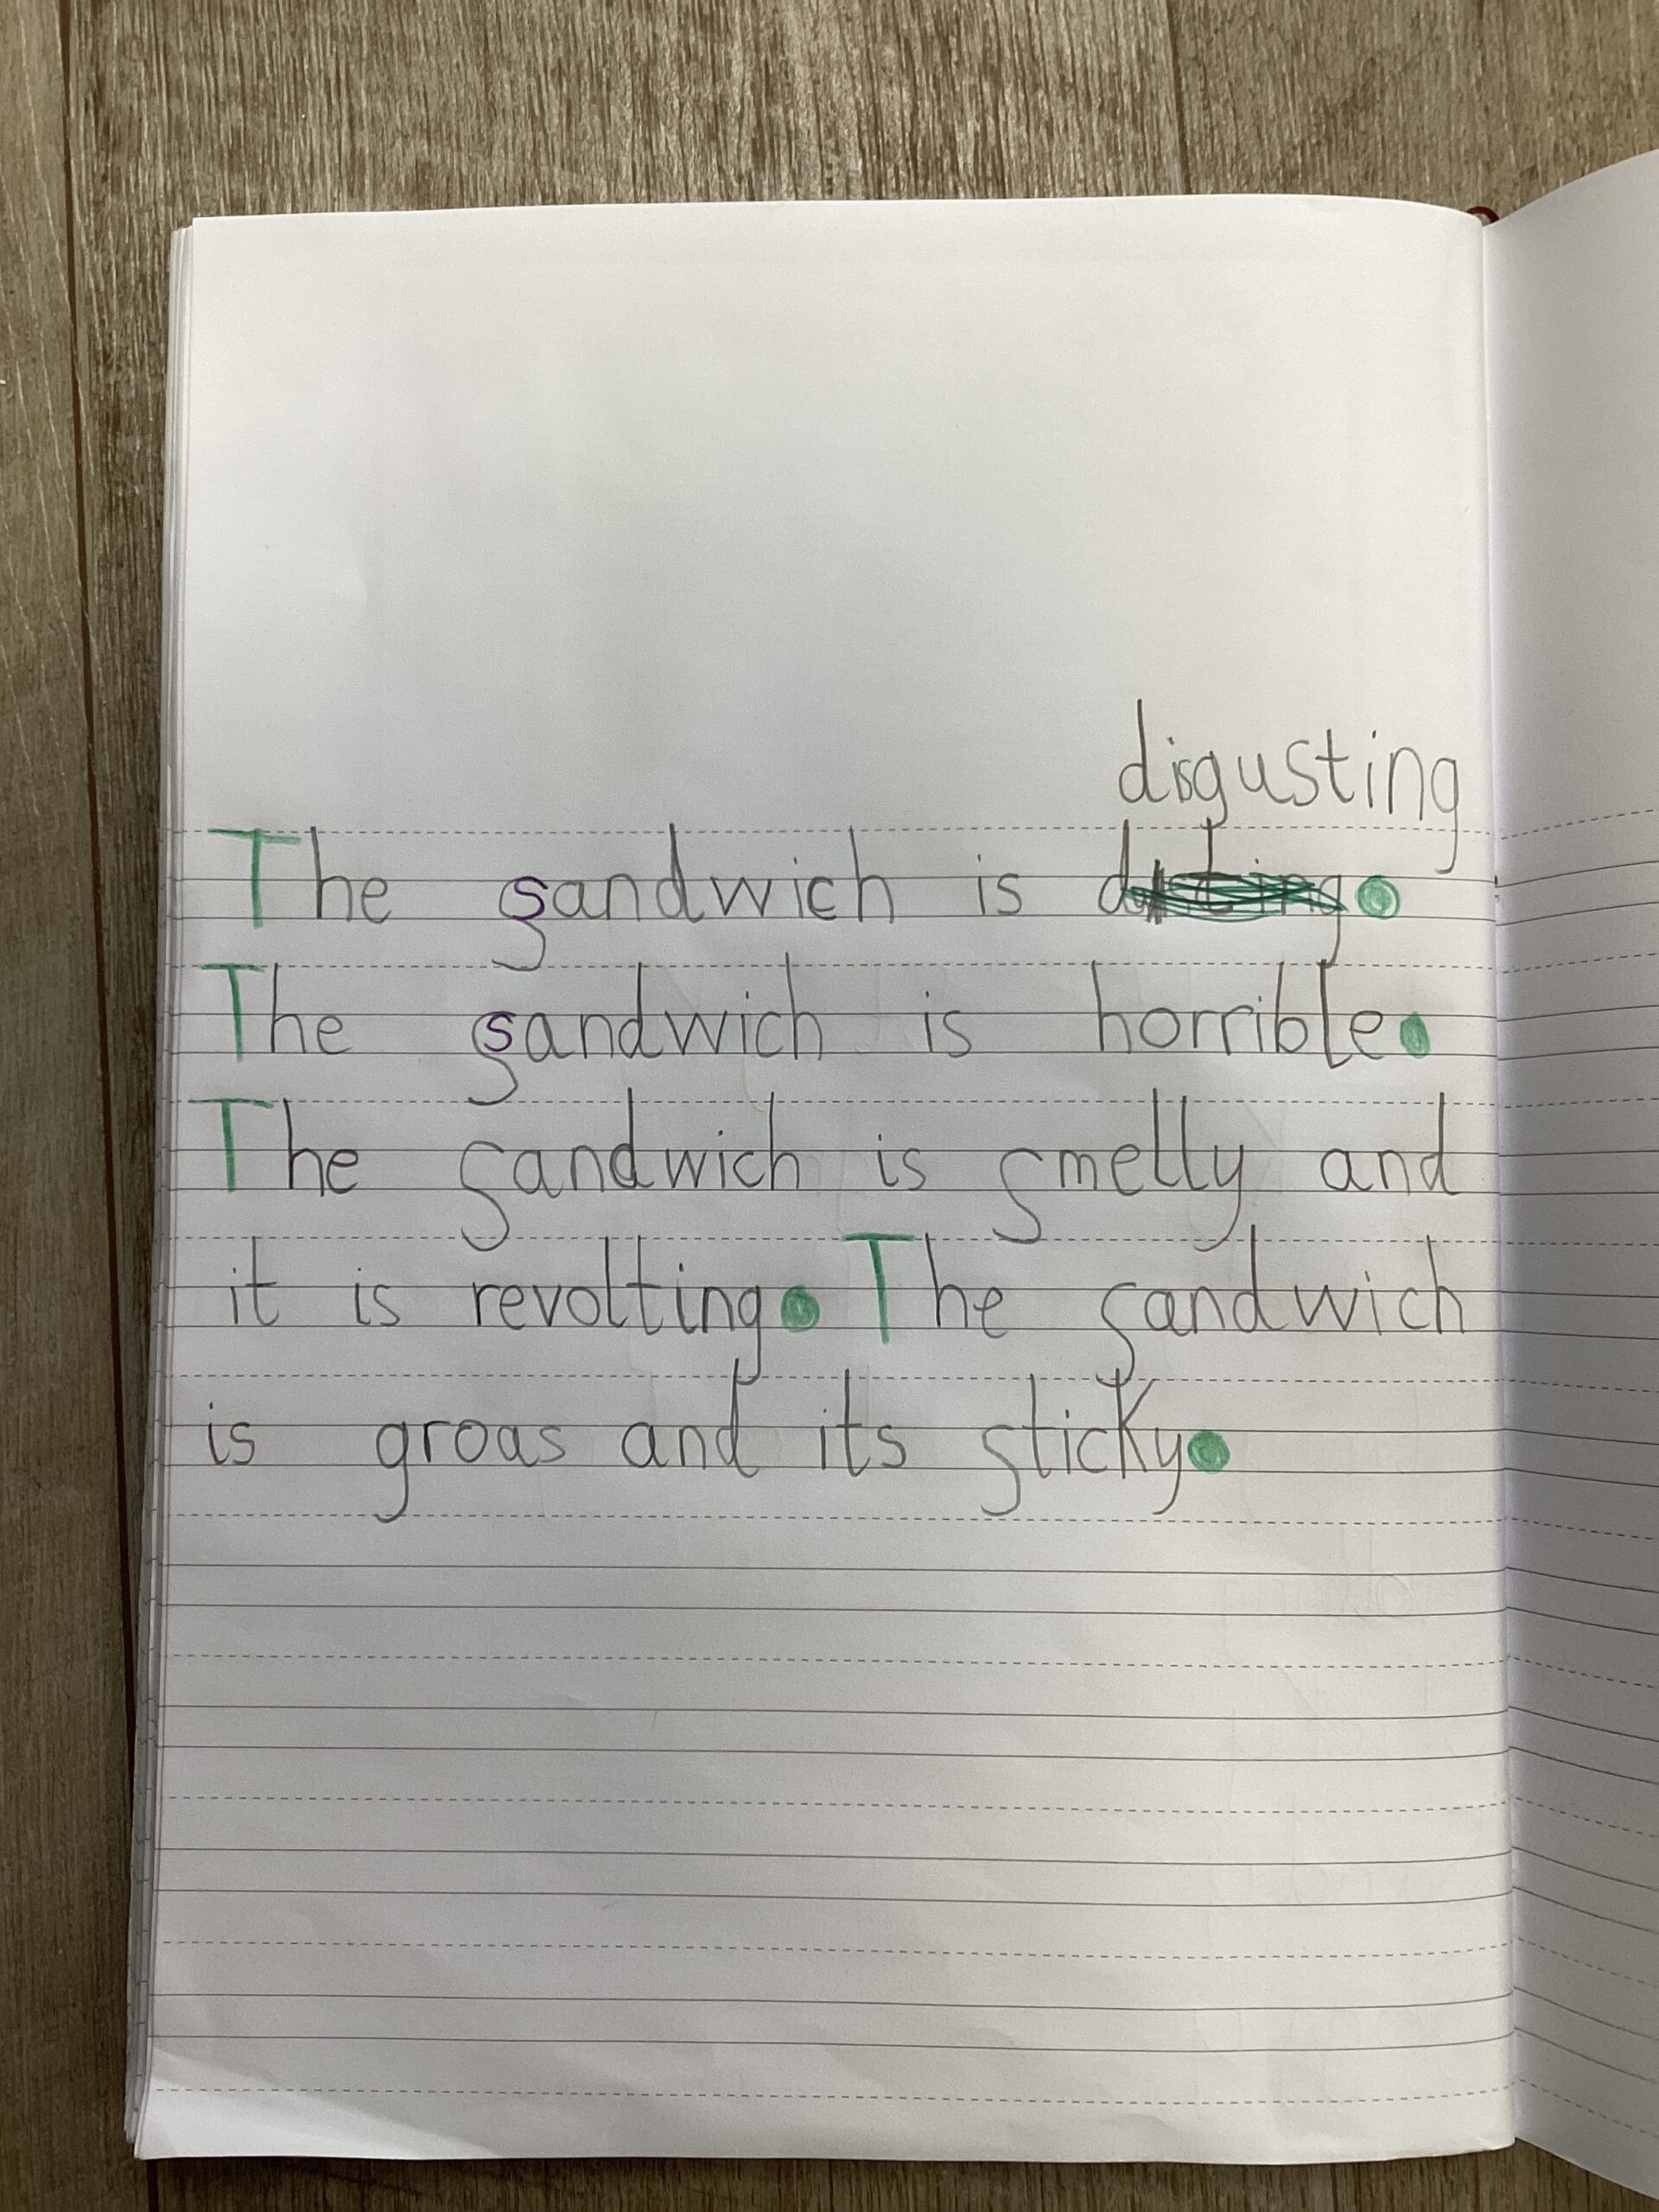 disgusting
The sandwich is
The sandwich is horrible.
The sandwich is smelly and
it is revolting. The sandwich
is groas and its sticky.